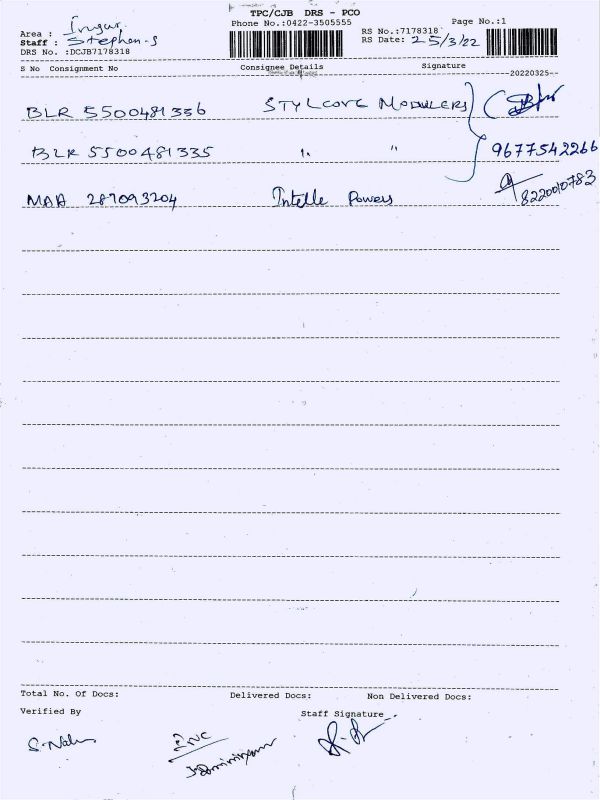 TPC/CJB DRS - PCO
Phone No.:0422-3505555
Page No.:1
Area : Irugur
Staff : Stephen-S
DRS No. :DCJB7178318
RS No.:7178318
RS Date: 25/3/22
S No Consignment No Consignee Details Signature
--20220325--
BLR 5500481336 STYLCOVE MODULERS
BLR 5500481335 " " 9677542266
MAA 287093204 Intelle Powers 8220010783
Total No. Of Docs: Delivered Docs: Non Delivered Docs:
Verified By Staff Signature